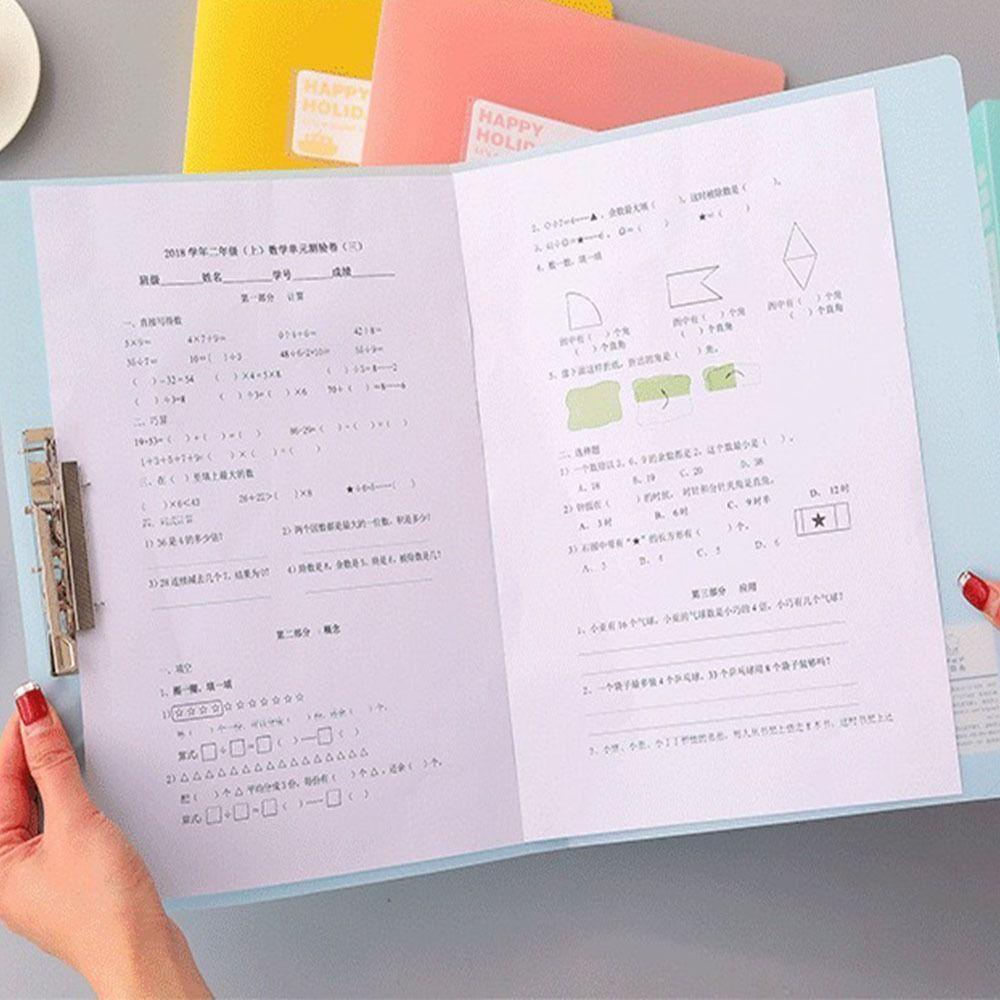 HAPPY
HOLID
HAPPY
HOLID
2018 学年二年级（上）数学单元测验卷（三）
班级______姓名______学号______成绩______
第一部分 计算
一、直接写得数
5×9= 4×7+9= 0÷1+6= 42÷8=
35÷7= 10=（ ）÷3 48÷6÷2+10= 55÷9=
（ ）-32=54 （ ）×4=5×8 （ ）÷5=8……2
（ ）÷3=8 （ ）÷3=（ ）×6 70÷（ ）=8……6
二、巧算
19+53=（ ）+（ ）=（ ） 86-29=（ ）-（ ）=（ ）
1+3+5+7+9=（ ）×（ ）=（ ）
三、在（ ）里填上最大的数
（ ）×6<43 26+22>（ ）×8 ★÷6=5……（ ）
1）36是4的多少倍? 2）两个因数都是最大的一位数，积是多少?
3）28连续减去几个7，结果为0? 4）除数是8，余数是5，商是6，被除数是几?
第二部分 概念
一、填空
1、圈一圈，填一填
1）☆☆☆☆☆☆☆☆☆☆☆☆☆
算式：□÷□=□（ ）……□（ ）
2）△△△△△△△△△△△△△△△△△
把（ ）个△平均分成3份，每份有（ ）个△，还余（ ）个。
算式：□÷□=□（ ）……□（ ）
2、◇÷7=4……▲，余数最大填（ ），这时被除数是（ ）。
3、41÷◎=★……6，◎=（ ） ★=（ ）
4、数一数，填一填
图中有（ ）个角 图中有（ ）个角 图中有（ ）个角
（ ）个直角 （ ）个直角 （ ）个直角
5、像下面这样折纸，折出的角是（ ）角。
二、选择题
1）一个数除以3、6、9的余数都是2，这个数最小是（ ）。
A、18 B、19 C、20 D、38
2）钟面在（ ）的时候，时针和分针夹角是直角。
A、3时 B、6时 C、9时半 D、12时
3）右图中带有"★"的长方形有（ ）个。
A、3 B、4 C、5 D、6
第三部分 应用
1、小亚有16个气球，小亚的气球数是小巧的4倍，小巧有几个气球?
2、一个袋子最多装4个乒乓球，33个乒乓球用8个袋子装够吗?